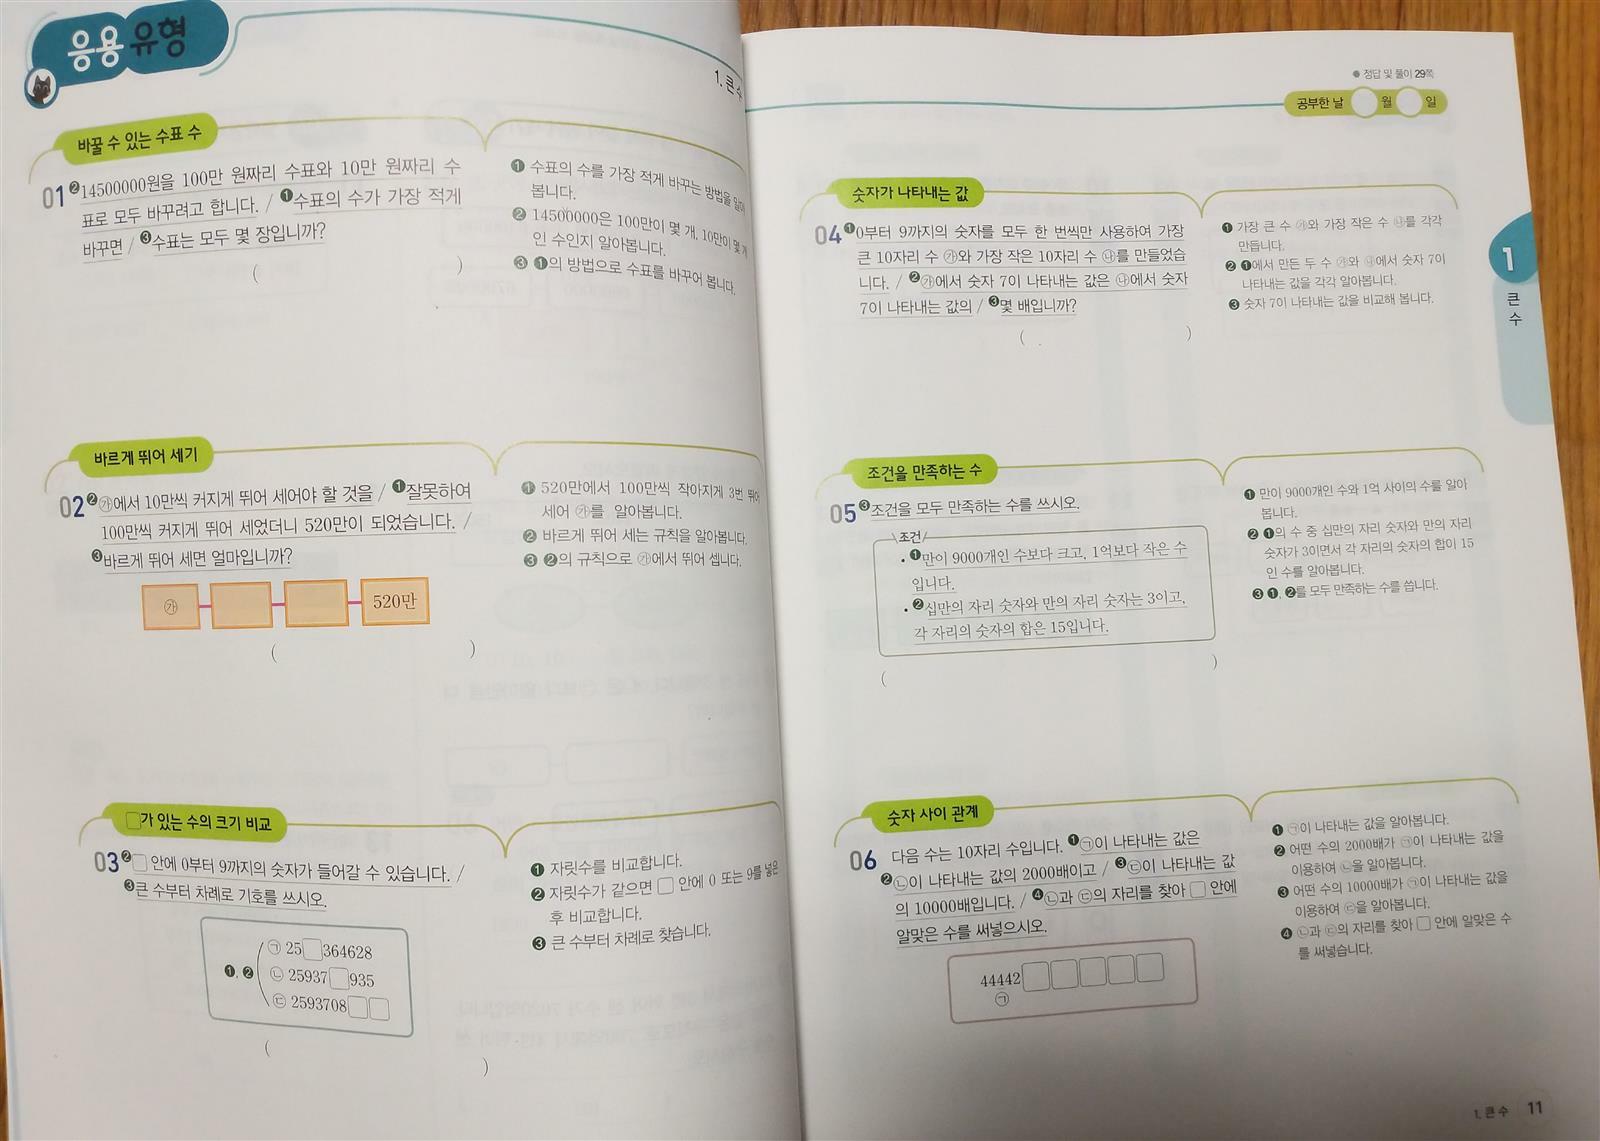 응용 유형
1. 큰 수
바꿀 수 있는 수표 수
01 ❷14500000원을 100만 원짜리 수표와 10만 원짜리 수
표로 모두 바꾸려고 합니다. / ❶수표의 수가 가장 적게
바꾸면 / ❸수표는 모두 몇 장입니까?
( )
❶ 수표의 수를 가장 적게 바꾸는 방법을 알아
봅니다.
❷ 14500000은 100만이 몇 개, 10만이 몇 개
인 수인지 알아봅니다.
❸ ❶의 방법으로 수표를 바꾸어 봅니다.
바르게 뛰어 세기
02 ❷㉮에서 10만씩 커지게 뛰어 세어야 할 것을 / ❶잘못하여
100만씩 커지게 뛰어 세었더니 520만이 되었습니다. /
❸바르게 뛰어 세면 얼마입니까?
㉮ 520만
( )
❶ 520만에서 100만씩 작아지게 3번 뛰어
세어 ㉮를 알아봅니다.
❷ 바르게 뛰어 세는 규칙을 알아봅니다.
❸ ❷의 규칙으로 ㉮에서 뛰어 셉니다.
□가 있는 수의 크기 비교
03 ❷□ 안에 0부터 9까지의 숫자가 들어갈 수 있습니다. /
❸큰 수부터 차례로 기호를 쓰시오.
❶, ❷
㉠ 25□364628
㉡ 25937□935
㉢ 2593708□□
( )
❶ 자릿수를 비교합니다.
❷ 자릿수가 같으면 □ 안에 0 또는 9를 넣은
후 비교합니다.
❸ 큰 수부터 차례로 찾습니다.
● 정답 및 풀이 29쪽
공부한 날 월 일
숫자가 나타내는 값
04 ❶0부터 9까지의 숫자를 모두 한 번씩만 사용하여 가장
큰 10자리 수 ㉮와 가장 작은 10자리 수 ㉯를 만들었습
니다. / ❷㉮에서 숫자 7이 나타내는 값은 ㉯에서 숫자
7이 나타내는 값의 / ❸몇 배입니까?
( )
❶ 가장 큰 수 ㉮와 가장 작은 수 ㉯를 각각
만듭니다.
❷ ❶에서 만든 두 수 ㉮와 ㉯에서 숫자 7이
나타내는 값을 각각 알아봅니다.
❸ 숫자 7이 나타내는 값을 비교해 봅니다.
1
큰
수
조건을 만족하는 수
05 ❸조건을 모두 만족하는 수를 쓰시오.
조건
• ❶만이 9000개인 수보다 크고, 1억보다 작은 수
입니다.
• ❷십만의 자리 숫자와 만의 자리 숫자는 3이고,
각 자리의 숫자의 합은 15입니다.
( )
❶ 만이 9000개인 수와 1억 사이의 수를 알아
봅니다.
❷ ❶의 수 중 십만의 자리 숫자와 만의 자리
숫자가 3이면서 각 자리의 숫자의 합이 15
인 수를 알아봅니다.
❸ ❶, ❷를 모두 만족하는 수를 씁니다.
숫자 사이 관계
06 다음 수는 10자리 수입니다. ❶㉠이 나타내는 값은
❷㉡이 나타내는 값의 2000배이고 / ❸㉢이 나타내는 값
의 10000배입니다. / ❹㉡과 ㉢의 자리를 찾아 □ 안에
알맞은 수를 써넣으시오.
44442□□□□□
㉠
❶ ㉠이 나타내는 값을 알아봅니다.
❷ 어떤 수의 2000배가 ㉠이 나타내는 값을
이용하여 ㉡을 알아봅니다.
❸ 어떤 수의 10000배가 ㉠이 나타내는 값을
이용하여 ㉢을 알아봅니다.
❹ ㉡과 ㉢의 자리를 찾아 □ 안에 알맞은 수
를 써넣습니다.
1. 큰 수 11